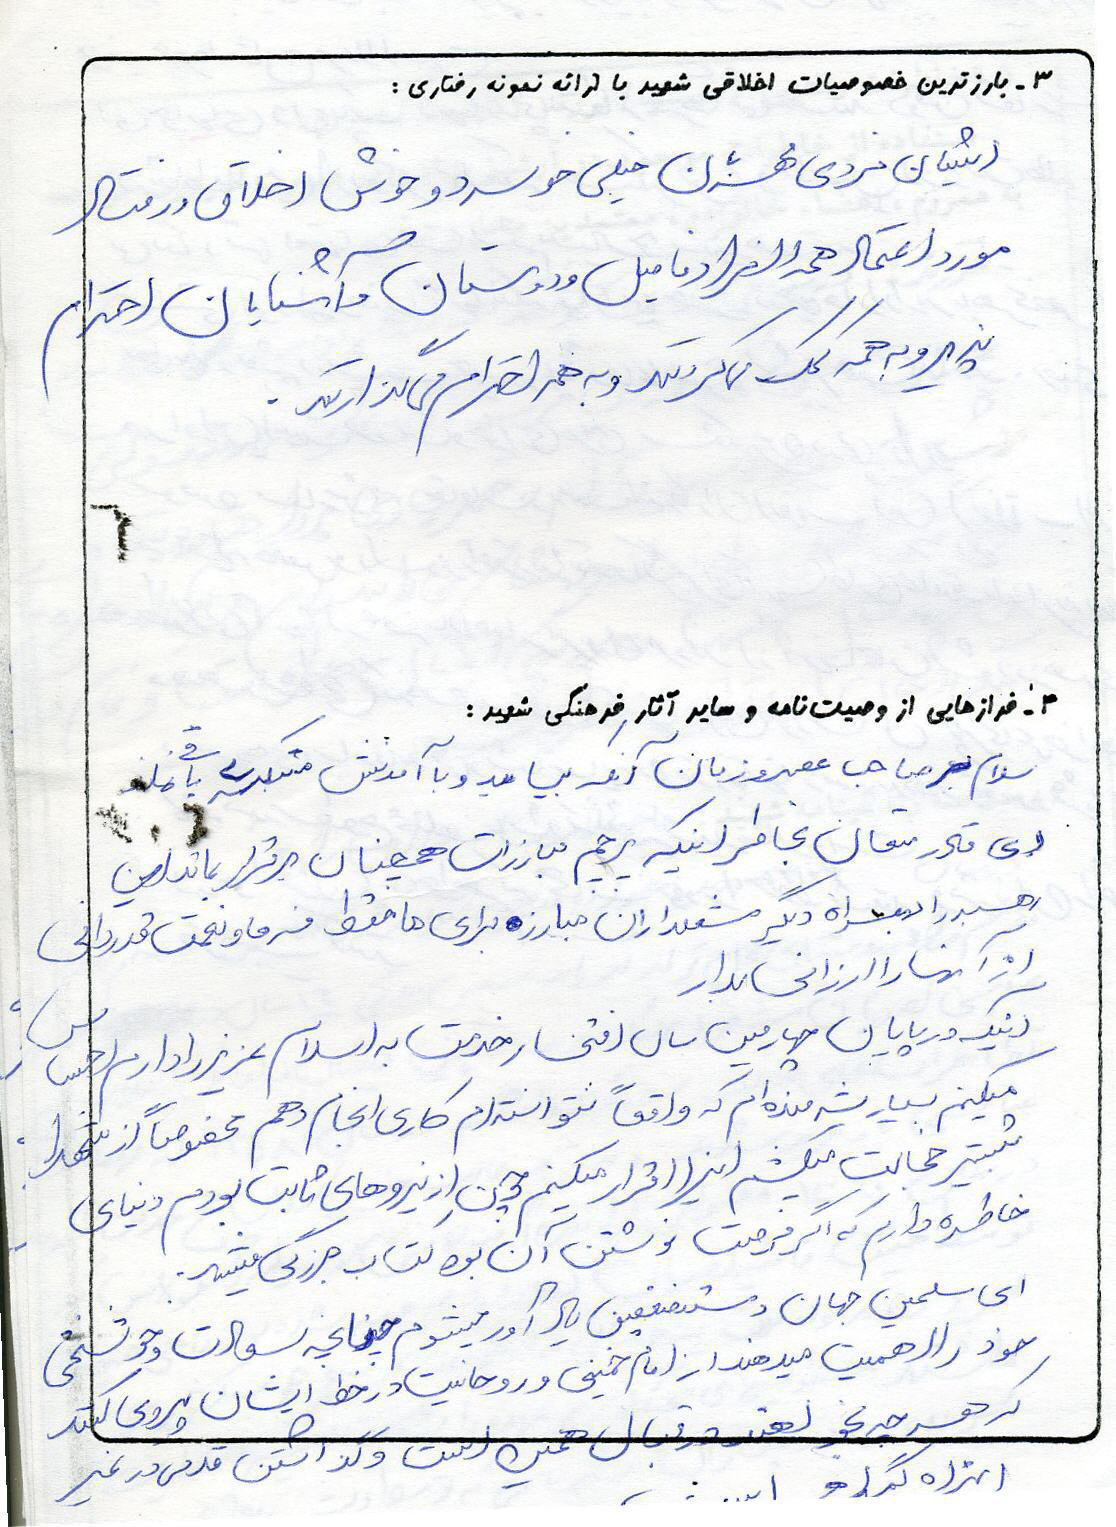 ۳ـ بارزترین خصوصیات اخلاقی شهید با ارائه نمونه رفتاری :
ایشان فردی خیلی خونسرد و خوش اخلاق و رفتار
مورد اعتماد همه افراد فامیل و دوستان و آشنایان احترام
پذیر و به همه کمک می‌کردند و به همه احترام می‌گذارند .
۴ـ فرازهایی از وصیت‌نامه و سایر آثار فرهنگی شهید :
سلام بر صاحب عصر و زمان آنکه بیاید و با آمدنش
ای قادر متعال بخاطر اینکه پرچم مبارزات همچنان برقرار بماند این
رهبر را بهمراه دیگر مشعلداران مبارزه برای ما حفظ فرما و نعمت قدردانی
از آنها را ارزانی بدار
اینک در پایان چهارمین سال افتخار خدمت به اسلام عزیز را دارم احساس
میکنم بسیار شرمنده‌ام که واقعاً نتوانسته‌ام کاری انجام دهم مخصوصاً از شهدا
بیشتر خجالت میکشم اینرا اقرار میکنم چون از نیروهای ثابت بودم دنیای
خاطره دارم که اگر فرصت نوشتن آن بود کتاب بزرگی میشد .
ای مسلمین جهان و مستضعفین یادآور میشوم چنانچه سعادت و خوشبختی
خود را اهمیت میدهند از امام خمینی و روحانیت در خط ایشان پیروی کنند
که هر چه در قبال همین است و گذاشتن قدمی در غیر
اینراه